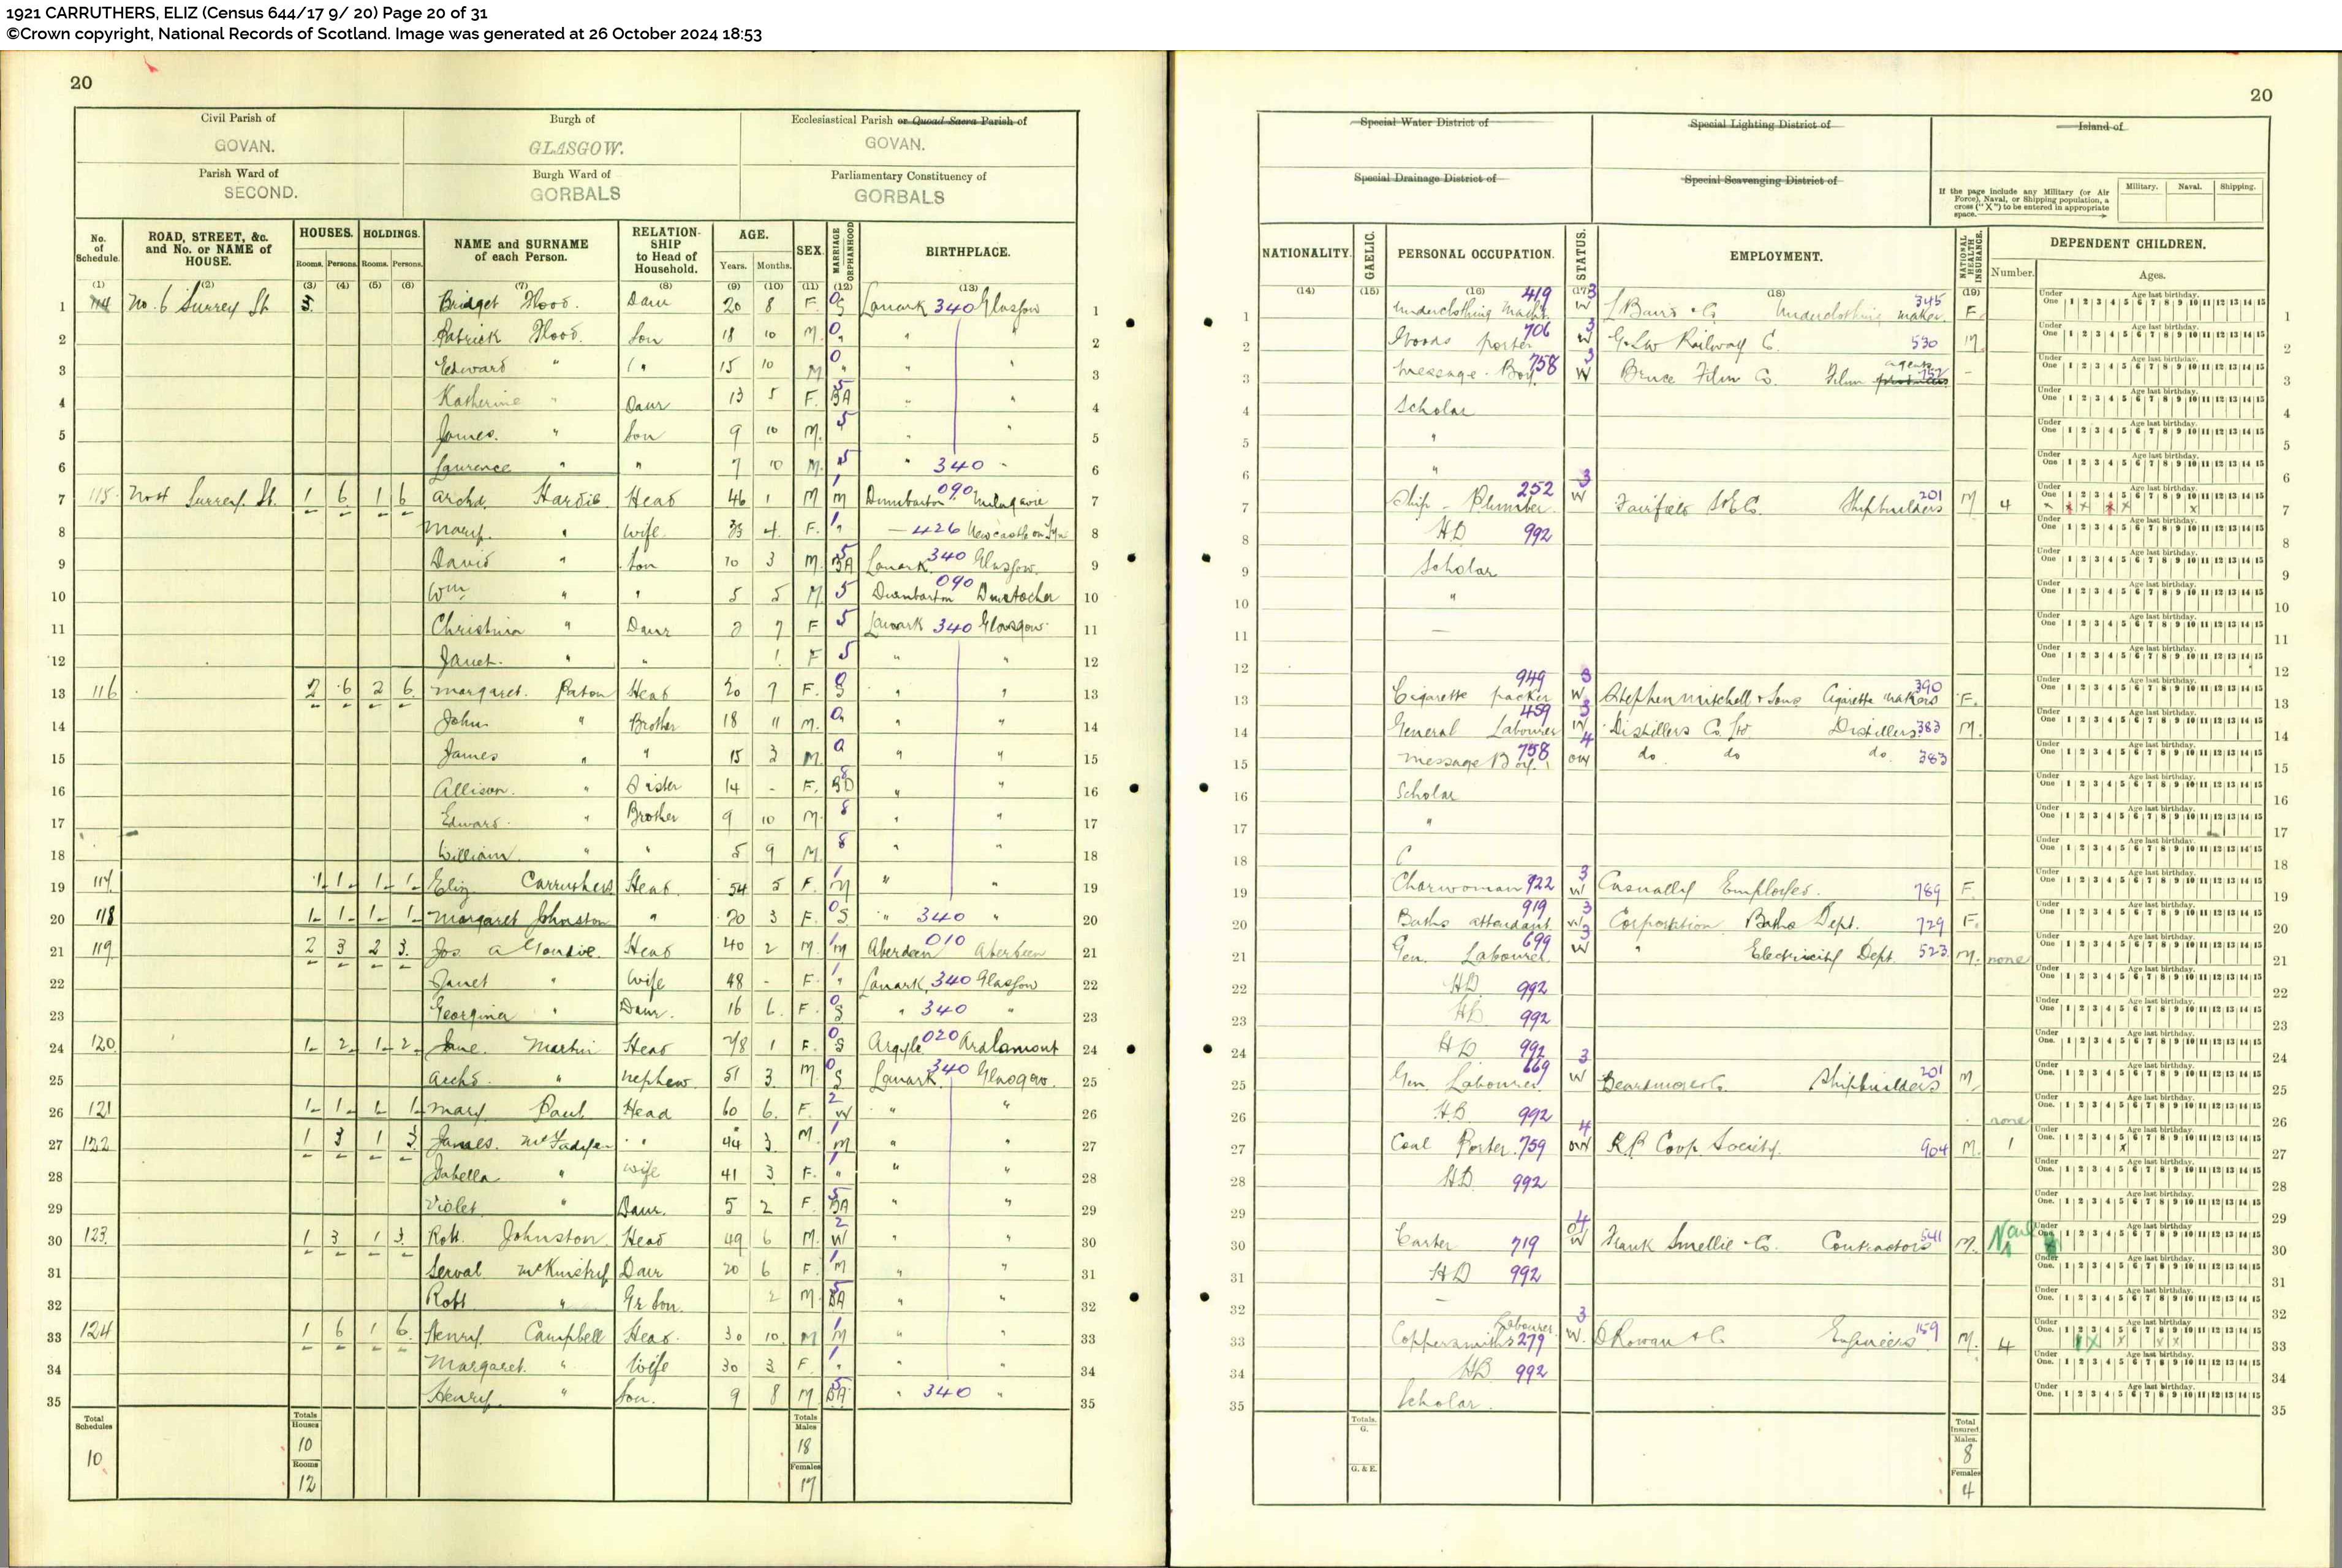 1921 CARRUTHERS, ELIZ (Census 644/17 9/ 20) Page 20 of 31
©Crown copyright, National Records of Scotland. Image was generated at 26 October 2024 18:53
20
Civil Parish of GOVAN. Burgh of GLASGOW. Ecclesiastical Parish or Quoad Sacra Parish of GOVAN.
Parish Ward of SECOND. Burgh Ward of GORBALS Parliamentary Constituency of GORBALS
No. of Schedule. ROAD, STREET, &c. and No. or NAME of HOUSE. HOUSES. Rooms. Persons. HOLDINGS. Rooms. Persons. NAME and SURNAME of each Person. RELATION-SHIP to Head of Household. AGE. Years. Months. SEX. MARRIAGE ORPHANHOOD BIRTHPLACE.
(1) (2) (3) (4) (5) (6) (7) (8) (9) (10) (11) (12) (13)
1 114 No. 6 Surrey St 3 Bridget Hood. Daur 20 8 F. 0 S Lanark 340 Glasgow 1
2 Patrick Hood. Son 18 10 M. 0 " " " 2
3 Edward " " 15 10 M 0 " " " 3
4 Katherine " Daur 13 5 F. 5 BA " " 4
5 James. " Son 9 10 M. 5 " " 5
6 Laurence " " 7 10 M. 5 " 340 " 6
7 115 Surrey St. 1 6 1 6 Archd. Hardie Head 46 1 M 1 M Dumbarton 090 Milngavie 7
8 Mary. " Wife. 35 4. F. 1 " — 426 Newcastle on Tyn 8
9 David " Son 10 3 M. 5 BA Lanark. 340 Glasgow. 9
10 Wm " " 5 5 M. 5 Dumbarton 090 Duntocher 10
11 Christina " Daur 7 F 5 Lanark 340 Glasgow. 11
12 Janet. " " 1 F 5 " " 12
13 116 2 6 2 6. Margaret. Paton Head 20 7 F. 0 S " " 13
14 John " Brother 18 11 M. 0 " " " 14
15 James " " 15 3 M. 0 " " 15
16 Allison. " Sister 14 - F. 8 BD " " 16
17 Edward. " Brother 9 10 M. 8 " " 17
18 William. " " 5 9 M. 8 " " 18
19 117 1 1 1 1 Eliz Carruthers Head. 54 5 F. 1 M " " 19
20 118 1 1 1 1 Margaret Johnston " 20 3 F. 0 S " 340 " 20
21 119 2 3 2 3. Jas. A Head 40 2 M. 1 M Aberdeen 010 Aberdeen 21
22 Janet " Wife 48 - F. 1 " Lanark. 340 Glasgow 22
23 Georgina " Daur. 16 6. F. 0 S " 340 " 23
24 120 1 2 1 2 Jane. Martin Head 78 1 F. 0 S Argyle 020 Ardlamont 24
25 Archd. " nephew. 51 3. M. 0 S Lanark. 340 Glasgow. 25
26 121 1 1 1 1 Mary Paul Head 60 6. F. 2 W " " 26
27 122 1 3 1 3 James. McFadyen " 44 3 M. 1 M " " 27
28 Isabella " Wife 41 3 F. 1 " " " 28
29 Violet " Daur. 5 2 F. 5 BA " " 29
30 123. 1 3 1 3 Robt. Johnston. Head 49 6 M. 2 W " " 30
31 McKinstry Daur 20 6 F. 1 M " " 31
32 Robt " Gr Son. 2 M. 5 BA " " 32
33 124 1 6 1 6. Henry Campbell Head. 30 10 M 1 M " " 33
34 Margaret. " Wife 30 3 F. 1 " " " 34
35 Henry. " Son. 9 8 M 5 BA " 340 " 35
Total Schedules 10 Totals Houses 10 Rooms 12 Totals Males 18 Females 17
20
Special Water District of Special Lighting District of Island of
Special Drainage District of Special Scavenging District of
If the page include any Military (or Air Force), Naval, or Shipping population, a cross ("X") to be entered in appropriate space. Military. Naval. Shipping.
NATIONALITY. GAELIC. PERSONAL OCCUPATION. STATUS. EMPLOYMENT. NATIONAL HEALTH INSURANCE. DEPENDENT CHILDREN. Number. Ages.
(14) (15) (16) (17) (18) (19)
Under One Age last birthday. 1 2 3 4 5 6 7 8 9 10 11 12 13 14 15
1 Underclothing Macht. 419 3 W Underclothing maker. 345 F. 1
2 Goods porter 706 3 W G&SW Railway C. 530 M. 2
3 Message Boy 758 3 W Bruce Film Co. Film agents 3
4 Scholar 4
5 " 5
6 " 6
7 Ship - Plumber. 252 3 W Fairfield S&E Co. Shipbuilders 201 M 4 7
8 HD 992 8
9 Scholar 9
10 " 10
11 — 11
12 12
13 Cigarette packer 949 3 W Stephen Mitchell & Sons Cigarette makers 390 F. 13
14 General Labourer 459 3 W Distillers Co. Ltd. Distillers 383 M. 14
15 Message Boy. 758 4 OW do do do. 383 15
16 Scholar 16
17 " 17
18 18
19 Charwoman 922 3 W Casually Employed. 789 F. 19
20 Baths attendant 919 3 W Corporation Baths Dept. 729 F. 20
21 Gen. Labourer 699 3 W " Electricity Dept. 523 M. none 21
22 HD 992 22
23 HD 992 23
24 HD 992 24
25 Gen. Labourer 669 3 W Beardmore & Co. Shipbuilders 201 M 25
26 HD 992 none 26
27 Coal Porter. 759 4 OW K.P. Coop Society. 904 M. 1 27
28 HD 992 28
29 29
30 Carter 719 4 OW Frank Smellie & Co. Contractors 541 M. 30
31 HD 992 31
32 — 32
33 Coppersmiths Labourer 279 3 W. D Rowan & C. Engineers 159 M. 4 33
34 HD 992 34
35 Scholar. 35
Totals. G. G. & E. Total Insured. Males. 8 Females 4